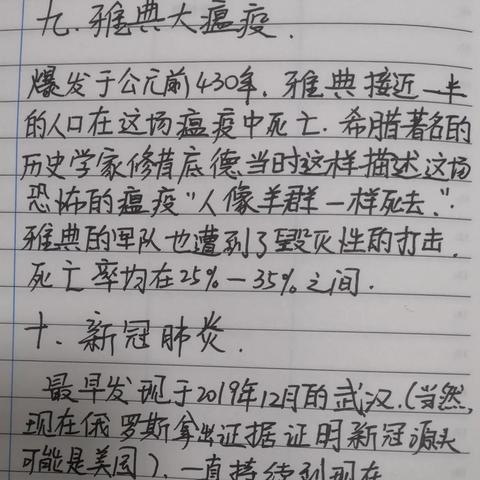 九.雅典大瘟疫.
爆发于公元前430年.雅典接近一半
的人口在这场瘟疫中死亡.希腊著名的
历史学家修昔底德当时这样描述这场
恐怖的瘟疫“人像羊群一样死去.”
雅典的军队也遭到了毁灭性的打击.
死亡率均在25%—35%之间.
十.新冠肺炎.
最早发现于2019年12月的武汉.(当然,
现在俄罗斯拿出证据证明新冠源头
可能是美国).一直持续到现在